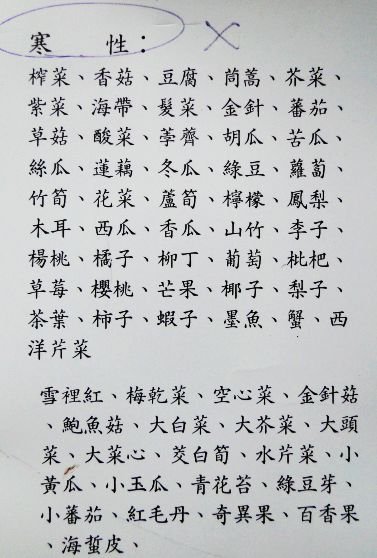 寒 性：
榨菜、香菇、豆腐、茼蒿、芥菜、
紫菜、海帶、髮菜、金針、蕃茄、
草菇、酸菜、荸薺、胡瓜、苦瓜、
絲瓜、蓮藕、冬瓜、綠豆、蘿蔔、
竹筍、花菜、蘆筍、檸檬、鳳梨、
木耳、西瓜、香瓜、山竹、李子、
楊桃、橘子、柳丁、葡萄、枇杷、
草莓、櫻桃、芒果、椰子、梨子、
茶葉、柿子、蝦子、墨魚、蟹、西
洋芹菜
雪裡紅、梅乾菜、空心菜、金針菇
、鮑魚菇、大白菜、大芥菜、大頭
菜、大菜心、茭白筍、水芹菜、小
黃瓜、小玉瓜、青花苔、綠豆芽、
小蕃茄、紅毛丹、奇異果、百香果
、海蜇皮、